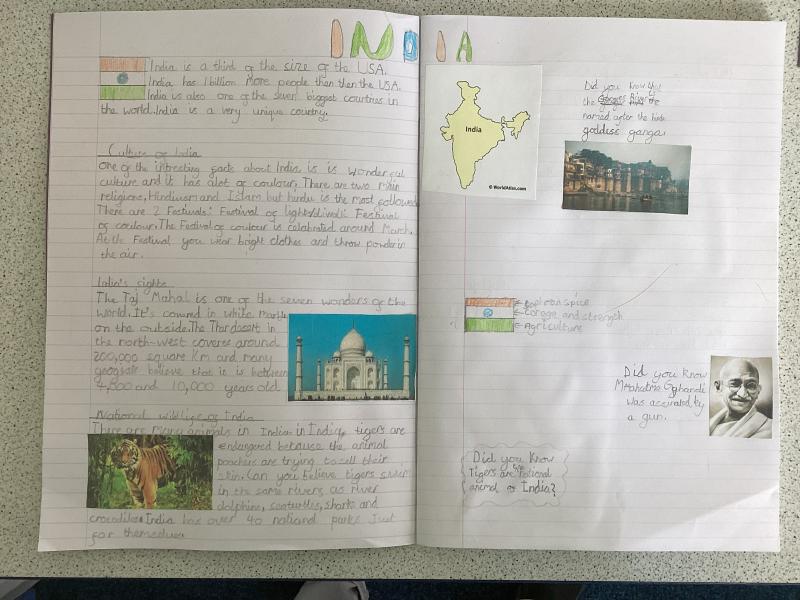 INDIA
India is a third of the size of the USA.
India has 1 billion more people then then the USA.
India is also one of the seven biggest countries in
the world. India is a very unique country.
Culture of India
One of the intresting facts about India is is wonderful
culture and it has alot of coulour. There are two main
religions, Hinduism and Islam but hindu is the most followed.
There are 2 Festivals: Festival of lights/diwali Festival
of coulour. The Festival of coulour is celebrated around March.
At the Festival you wear bright clothes and throw powder in
the air.
India's sights
The Taj Mahal is one of the seven wonders of the
world. It's covered in white marble
on the outside. The Thar desert in
the north-west coveres around
200,000 square Km and many
believe that it is between
4,800 and 10,000 years old
National wildlife of India
There are many animals in India in India, tigers are
endangered because the animal
poachers are trying to sell their
skin. Can you believe tigers swim
in the same rivers as river
dolphins, seaturtles, sharks and
crocodiles India has over 40 national parks Just
for themselves
India
© WorldAtlas.com
Did you know that
the Ganges River
named after the hindu
goddess ganga
spice
Corage and strength
Agriculture
Did you know
Gghandi
was by
a gun.
Did you know
Tigers are the national
animal of India?